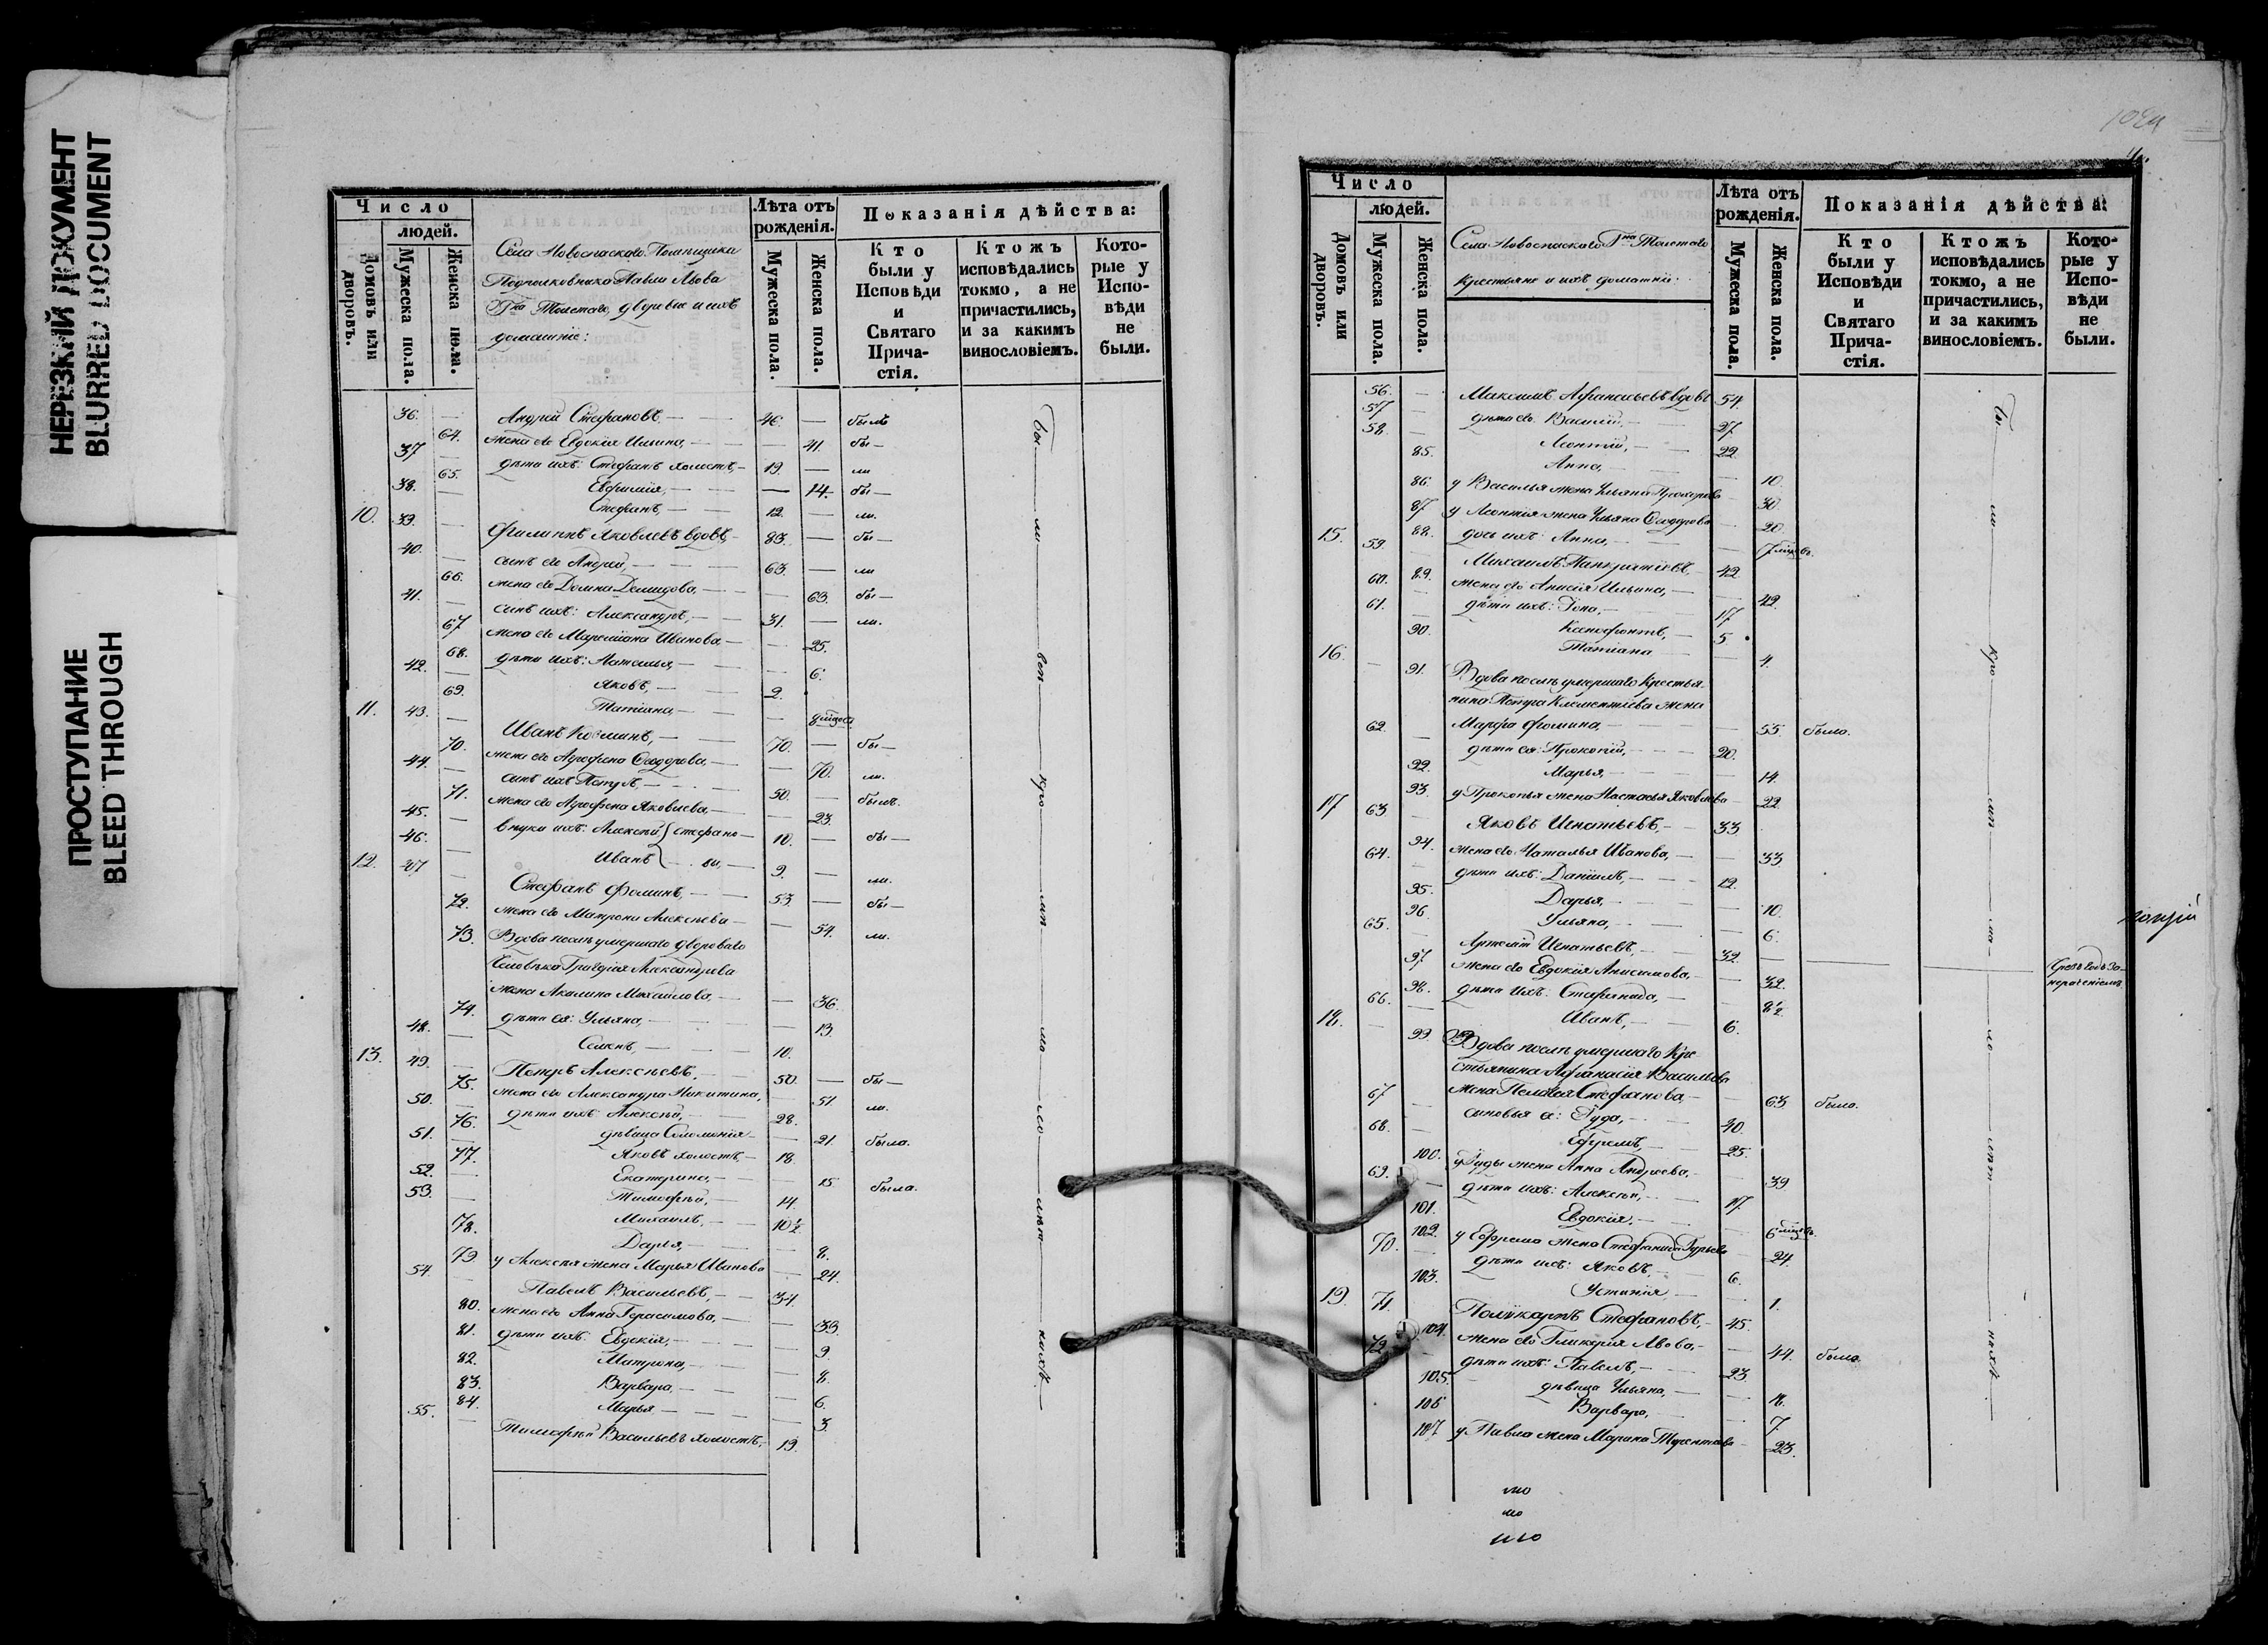 НЕРЕЗКИЙ ДОКУМЕНТ
BLURRED DOCUMENT
ПРОСТУПАНИЕ
BLEED THROUGH
Число
людей.
Домовъ или дворовъ.
Мужеска пола.
Женска пола.
Села Новоспаскаго Помѣщика
Подполковника Павла Львова
Гна Толстаго, дворовые и ихъ
домашніе:
Лѣта отъ рожденія.
Мужеска пола.
Женска пола.
Показанія дѣйства:
Кто были у Исповѣди и Святаго Прича-стія.
Ктожъ исповѣдались токмо, а не причастились, и за какимъ винословіемъ.
Кото-рые у Испо-вѣди не были.
36. — Андрей Стефановъ, 46. — былъ
64. жена его Евдокія Ильина, — 41. бы —
37 — дѣти ихъ: Стефанъ холостъ, 19. — ли
65. Евфимія, — 14. бы —
38. — Стефанъ, 12. — ли.
10. 39. — Филиппъ Яковлевъ вдовъ, 83. — бы —
40. — сынъ его Андрей, 63. — ли
66. жена его Домна Демидова, — 63. бы —
41. — сынъ ихъ: Александръ, 31. — ли.
67 жена его Маремiана Иванова, — 25.
68. дѣти ихъ: Наталья, — 6.
42. — Яковъ, 2.
69. Татіана, —
11. 43. — Иванъ Козминъ, 70. — бы —
70. жена его Агрофена Ѳеодорова, — 70. ли.
44. — сынъ ихъ Петръ, 50. — былъ.
71. жена его Агрофена Яковлева, — 23.
45. — внуки ихъ: Алексѣй, 10. — бы —
46. — Иванъ 9. — ли.
12. 47 — Стефанъ Фоминъ, 53. — бы —
72. жена его Матрона Алексѣева — 54. ли.
73. Вдова послѣ умершаго двороваго
человѣка Григорія Александрова
жена Акилина Михайлова, — 36.
74. дѣти ея: Ульяна, — 13.
48. — Семенъ, 10.
13. 49. — Петръ Алексѣевъ, 50. — бы —
75. жена его Александра Никитина, — 51. ли.
50. — дѣти ихъ: Алексѣй, 28.
76. дѣвица Соломонія — 21. была.
51. — Яковъ холостъ, 18.
77. Екатерина, — 15. была.
52. — Тимофей, 14.
53. — Михаилъ, 10½
78. Дарья, — 8.
79. у Алексѣя жена Марья Иванова — 24.
54. — Павелъ Васильевъ, 34.
80. жена его Анна Герасимова, — 33.
81. дѣти ихъ: Евдокія, — 9.
82. Матрона, — 8.
83. Варвара, — 6.
84. Марья, — 3.
55. — Тимофей Васильевъ холостъ, 19.
Число
людей.
Домовъ или дворовъ.
Мужеска пола.
Женска пола.
Села Новоспаскаго Гна Толстаго
крестьяне и ихъ домашніе:
Лѣта отъ рожденія.
Мужеска пола.
Женска пола.
Показанія дѣйства:
Кто были у Исповѣди и Святаго Прича-стія.
Ктожъ исповѣдались токмо, а не причастились, и за какимъ винословіемъ.
Кото-рые у Испо-вѣди не были.
56. — Максимъ Афанасьевъ вдовъ 54.
57 — дѣти его Василій, 27.
58. — Леонтій, 22.
85. Анна, — 10.
86. у Василья жена Ульяна Прохорова — 30.
87 у Леонтія жена Ульяна Ѳеодорова — 20.
88. дочь ихъ Анна, — 7 мѣсяц.
15. 59. Михаилъ Панкратіевъ, 42
89. жена его Анисія Ильина, — 42.
60. — дѣти ихъ: Іона, 17
61. — Ксенофонтъ, 5
90. Татіана — 4.
16. — 91. Вдова послѣ умершаго Крестья-
нина Петра Климентіева жена
Марфа Фомина, — 55. была.
62. — дѣти ея: Прокопій, 20.
92. Марья, — 14.
93. у Прокопья жена Настасья Яковлева — 22.
17 63 — Яковъ Игнатьевъ, 33
94. жена его Наталья Иванова, — 33
64. — дѣти ихъ: Даніилъ, 12.
95. Дарья, — 10.
96. Ульяна, — 6.
65. — Артемій Игнатьевъ, 32. —
97 жена его Евдокія Анисимова, — 32.
98. дѣти ихъ: Стефанида, — 8½.
66. — Иванъ, 6.
18. — 99. Вдова послѣ умершаго Кре-
стьянина Афанасія Васильева
жена Пелагея Стефанова, — 63 была.
67 — сыновья ея: Іуда, 40.
68. — Ефремъ, 25.
100. у Іуды жена Анна Андреева, — 39
69. — дѣти ихъ: Алексѣй, 17
101. Евдокія, — 6 мѣсяц.
102. у Ефрема жена Стефанида Гурьева — 24.
70. — дѣти ихъ: Яковъ, 6.
103. Устинія, — 1.
19. 71. Поликарпъ Стефановъ, 45.
104. жена его Гликерія Львова, — 44. была.
72. — дѣти ихъ: Павелъ, 23.
105. дѣвица Ульяна, — 18.
106 Варвара, — 7.
107 у Павла жена Марина Терентьева — 23.